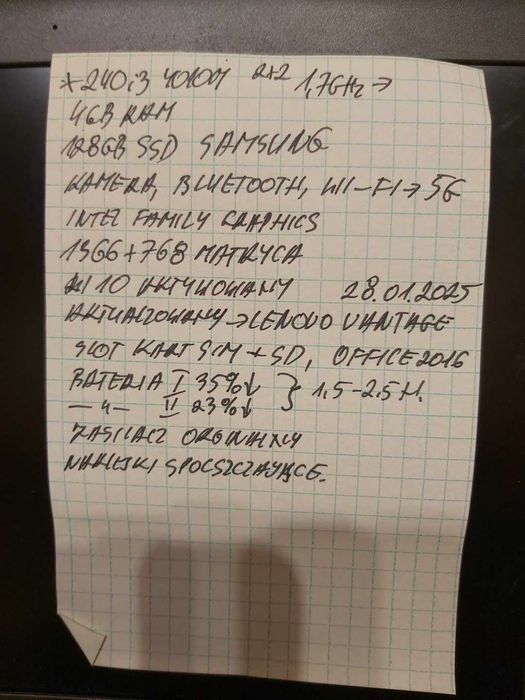 *240, i3 4010M 2+2 1,7GHz →
4GB RAM
128GB SSD SAMSUNG
KAMERA, BLUETOOTH, WI-FI → 5G
INTEL FAMILY GRAPHICS
1366+768 MATRYCA
W 10 AKTYWOWANY 28.01.2025
AKTUALIZOWANY → LENOVO VANTAGE
SLOT KART SIM + SD, OFFICE 2016
BATERIA I 35%↓ } 1,5-2,5H.
—〃— II 23%↓
ZASILACZ ORGINALNY
NAKLEJKI SPOCSZCZAJĄCE.